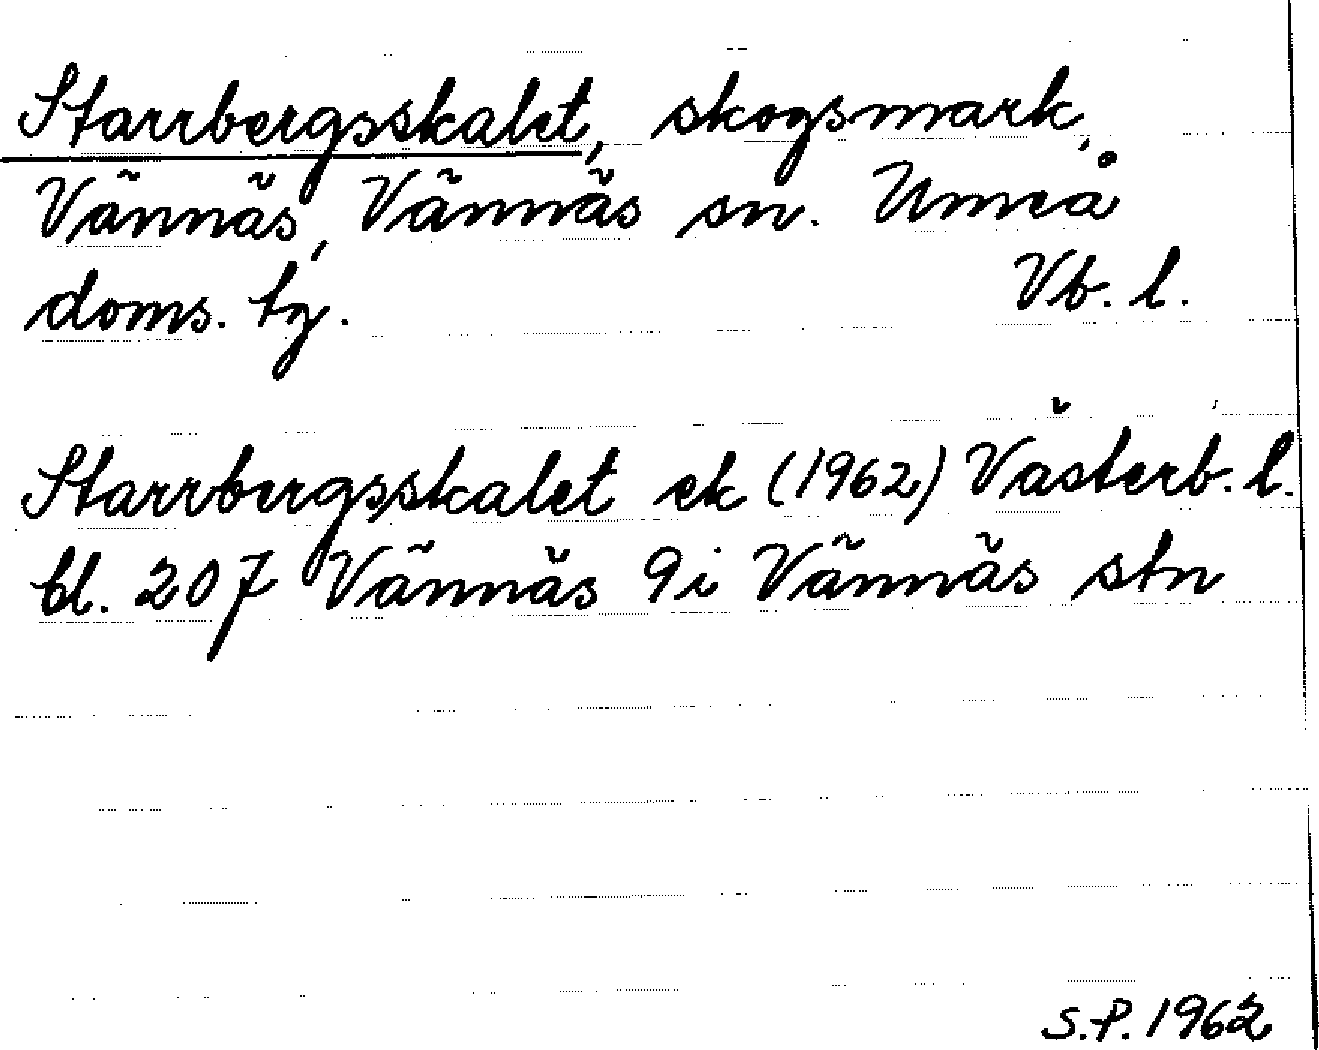 Starrbergsskalet, skogsmark,
Vännäs, Vännäs sn. Umeå
doms. tg. Vb. l.
Starrbergsskalet ek (1962) Västerb. l.
bl. 207 Vännäs 9i Vännäs stn
S.P. 1962